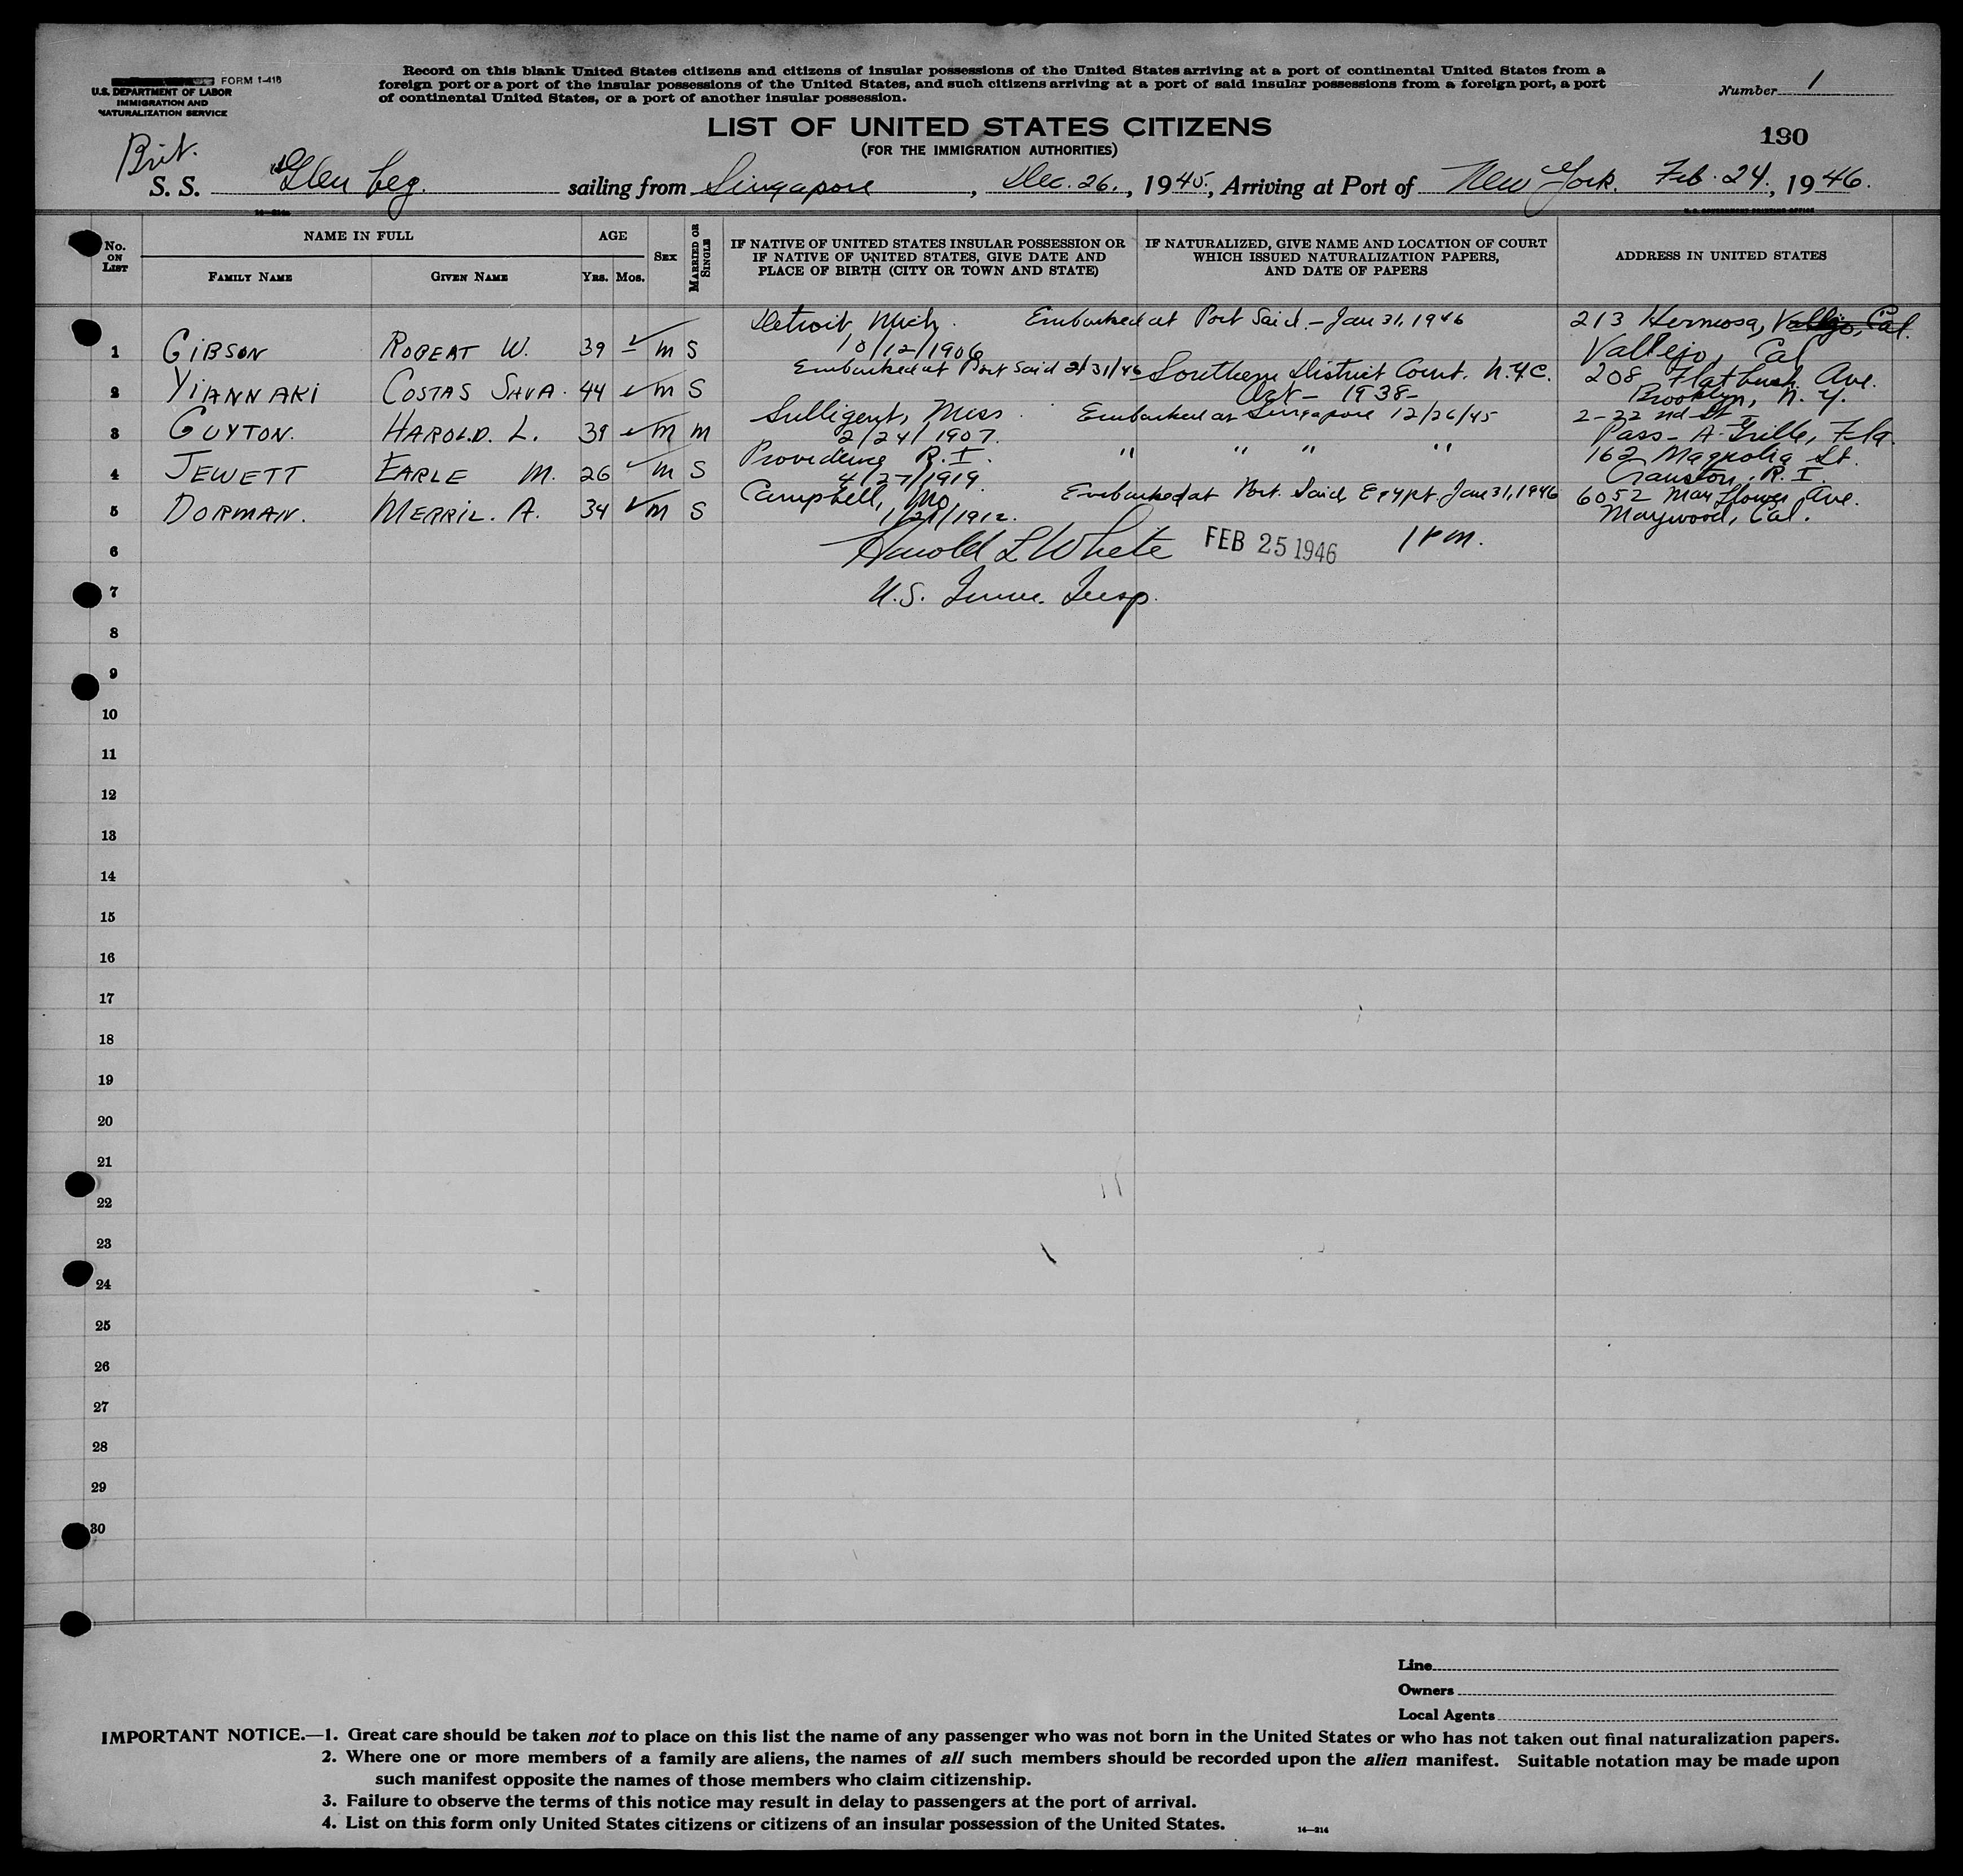 FORM I-418
U.S. DEPARTMENT OF LABOR
IMMIGRATION AND
NATURALIZATION SERVICE
Record on this blank United States citizens and citizens of insular possessions of the United States arriving at a port of continental United States from a
foreign port or a port of the insular possessions of the United States, and such citizens arriving at a port of said insular possessions from a foreign port, a port
of continental United States, or a port of another insular possession.
Number 1
LIST OF UNITED STATES CITIZENS
(FOR THE IMMIGRATION AUTHORITIES)
130
Brit.
S. S. Glen beg. sailing from Singapore, Dec. 26., 1945., Arriving at Port of New York. Feb. 24., 1946.
U. S. GOVERNMENT PRINTING OFFICE
No. ON LIST
NAME IN FULL
FAMILY NAME
GIVEN NAME
AGE
YRS. MOS.
SEX
MARRIED OR SINGLE
IF NATIVE OF UNITED STATES INSULAR POSSESSION OR
IF NATIVE OF UNITED STATES, GIVE DATE AND
PLACE OF BIRTH (CITY OR TOWN AND STATE)
IF NATURALIZED, GIVE NAME AND LOCATION OF COURT
WHICH ISSUED NATURALIZATION PAPERS,
AND DATE OF PAPERS
ADDRESS IN UNITED STATES
Detroit, Mich. Embarked at Port Said - Jan 31, 1946 213 Hermosa, Vallejo, Cal.
1 GIBSON ROBERT W. 39 M S 10/12/1906 Vallejo, Cal
Embarked at Port Said 31/46 Southern District Court. N.Y.C. 208 Flatbush Ave.
2 YIANNAKI COSTAS 44 M S Oct - 1938- Brooklyn, N.Y.
Sulligent, Miss. Embarked at Singapore 12/26/45 2-22 nd St
3 GUYTON. HAROLD. L. 39 M M 2/24/1907. Pass-A-Grille, Fla.
Providence R.I. " " " " 162 Magnolia St.
4 JEWETT EARLE M. 26 M S 4/27/1919 Cranston, R.I.
Campbell, Mo. Embarked at Port. Said Egypt. Jan 31, 1946 6052 Mayflower Ave.
5 DORMAN. MERRIL. A. 34 M S 1/21/1912. Maywood, Cal.
6 Harold L White FEB 25 1946 1 PM.
7 U.S. Imm. Insp.
8
9
10
11
12
13
14
15
16
17
18
19
20
21
22
23
24
25
26
27
28
29
30
Line
Owners
Local Agents
IMPORTANT NOTICE.—1. Great care should be taken not to place on this list the name of any passenger who was not born in the United States or who has not taken out final naturalization papers.
2. Where one or more members of a family are aliens, the names of all such members should be recorded upon the alien manifest. Suitable notation may be made upon
such manifest opposite the names of those members who claim citizenship.
3. Failure to observe the terms of this notice may result in delay to passengers at the port of arrival.
4. List on this form only United States citizens or citizens of an insular possession of the United States.
14—214